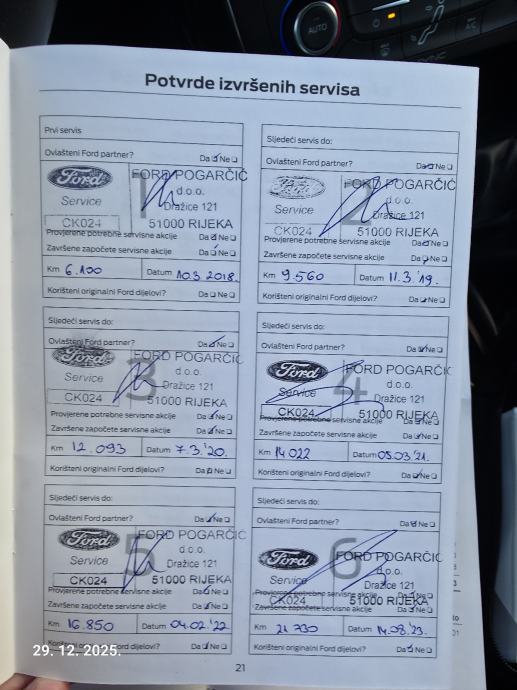 AUTO
Potvrde izvršenih servisa
Prvi servis
Ovlašteni Ford partner? Da Ne
Ford
Service
CK024
1
FORD POGARČIĆ
d.o.o.
Dražice 121
51000 RIJEKA
Provjerene potrebne servisne akcije Da Ne
Završene započete servisne akcije Da Ne
Km 6.100 Datum 10.3.2018.
Korišteni originalni Ford dijelovi? Da Ne
Sljedeći servis do:
Ovlašteni Ford partner? Da Ne
Ford
Service
CK024
2
FORD POGARČIĆ
d.o.o.
Dražice 121
51000 RIJEKA
Provjerene potrebne servisne akcije Da Ne
Završene započete servisne akcije Da Ne
Km 9.560 Datum 11.3.'19.
Korišteni originalni Ford dijelovi? Da Ne
Sljedeći servis do:
Ovlašteni Ford partner? Da Ne
Ford
Service
CK024
3
FORD POGARČIĆ
d.o.o.
Dražice 121
51000 RIJEKA
Provjerene potrebne servisne akcije Da Ne
Završene započete servisne akcije Da Ne
Km 12.093 Datum 7.3.'20.
Korišteni originalni Ford dijelovi? Da Ne
Sljedeći servis do:
Ovlašteni Ford partner? Da Ne
Ford
Service
CK024
4
FORD POGARČIĆ
d.o.o.
Dražice 121
51000 RIJEKA
Provjerene potrebne servisne akcije Da Ne
Završene započete servisne akcije Da Ne
Km 14022 Datum 05.03.'21.
Korišteni originalni Ford dijelovi? Da Ne
Sljedeći servis do:
Ovlašteni Ford partner? Da Ne
Ford
Service
CK024
5
FORD POGARČIĆ
d.o.o.
Dražice 121
51000 RIJEKA
Provjerene potrebne servisne akcije Da Ne
Završene započete servisne akcije Da Ne
Km 16.850 Datum 04.02.'22
Korišteni originalni Ford dijelovi? Da Ne
Sljedeći servis do:
Ovlašteni Ford partner? Da Ne
Ford
Service
CK024
6
FORD POGARČIĆ
d.o.o.
Dražice 121
51000 RIJEKA
Provjerene potrebne servisne akcije Da Ne
Završene započete servisne akcije Da Ne
Km 21.730 Datum 14.08.'23.
Korišteni originalni Ford dijelovi? Da Ne
21
29. 12. 2025.